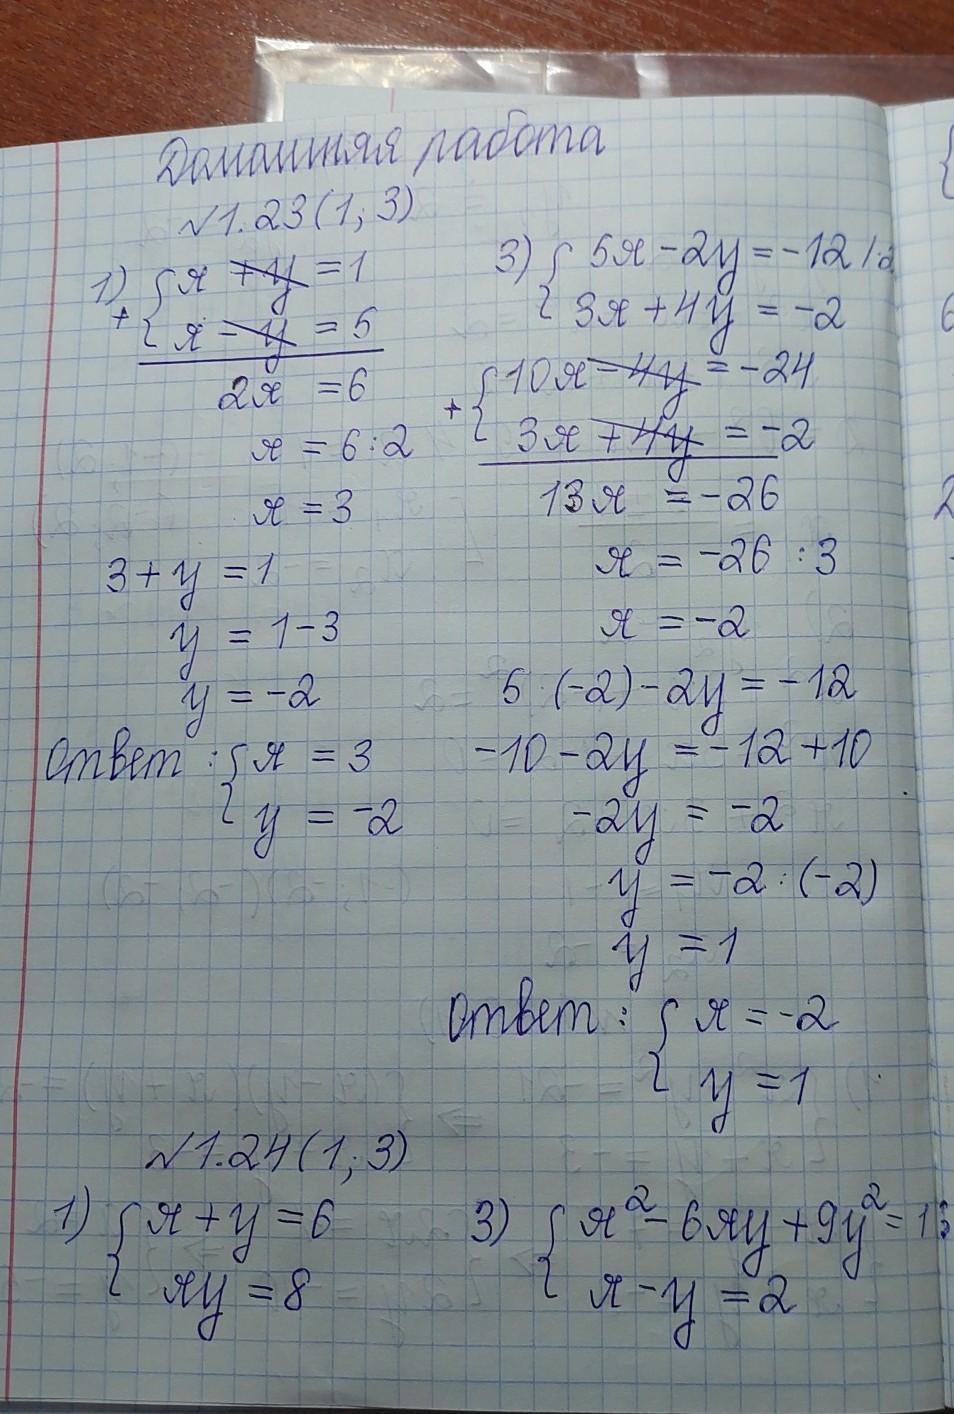 Домашняя работа
№1.23(1; 3)
1) { x + y = 1
+ { x - y = 5
2x = 6
x = 6 : 2
x = 3
3 + y = 1
y = 1 - 3
y = -2
Ответ : { x = 3
{ y = -2
3) { 5x - 2y = -12 |·2
{ 3x + 4y = -2
+ { 10x - 4y = -24
3x + 4y = -2
13x = -26
x = -26 : 3
x = -2
5 · (-2) - 2y = -12
-10 - 2y = -12 + 10
-2y = -2
y = -2 : (-2)
y = 1
Ответ : { x = -2
{ y = 1
№1.24(1; 3)
1) { x + y = 6
{ xy = 8
3) { x² - 6xy + 9y² = 1
{ x - y = 2